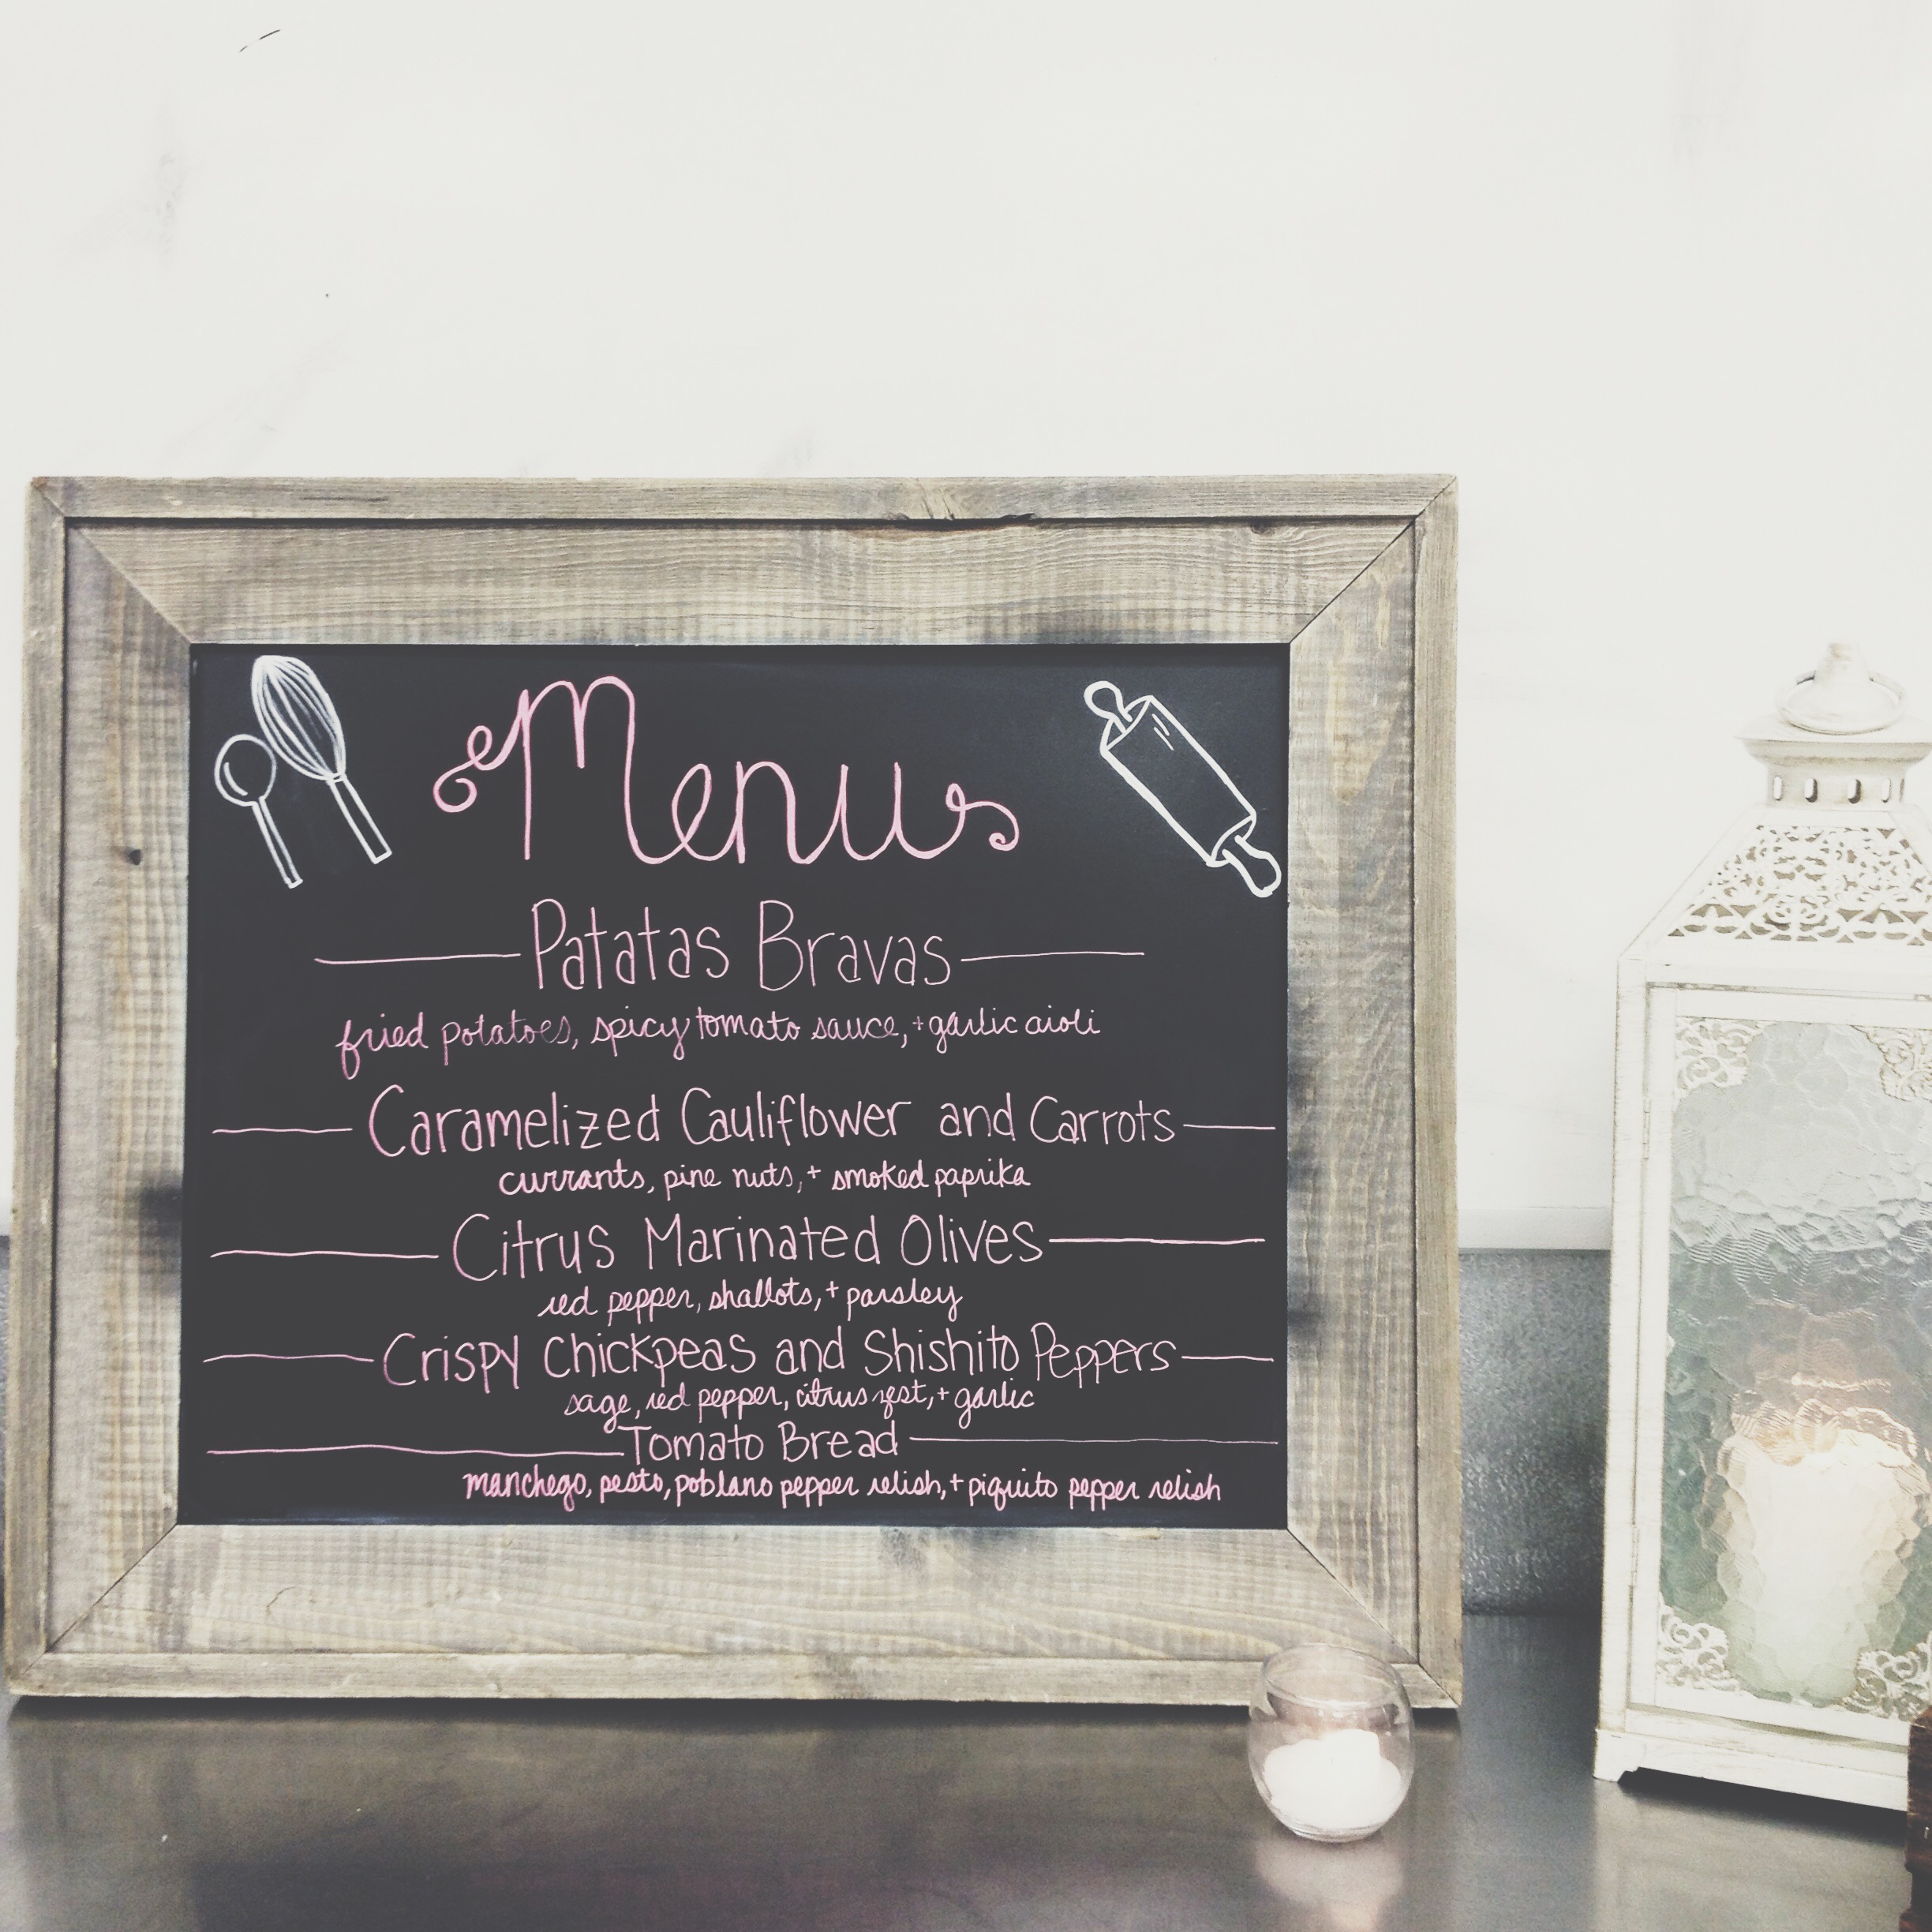 Menu
Patatas Bravas
fried potatoes, spicy tomato sauce, + garlic aioli
Caramelized Cauliflower and Carrots
currants, pine nuts, + smoked paprika
Citrus Marinated Olives
red pepper, shallots, + parsley
Crispy Chickpeas and Shishito Peppers
sage, red pepper, citrus zest, + garlic
Tomato Bread
manchego, pesto, poblano pepper relish, + piquito pepper relish